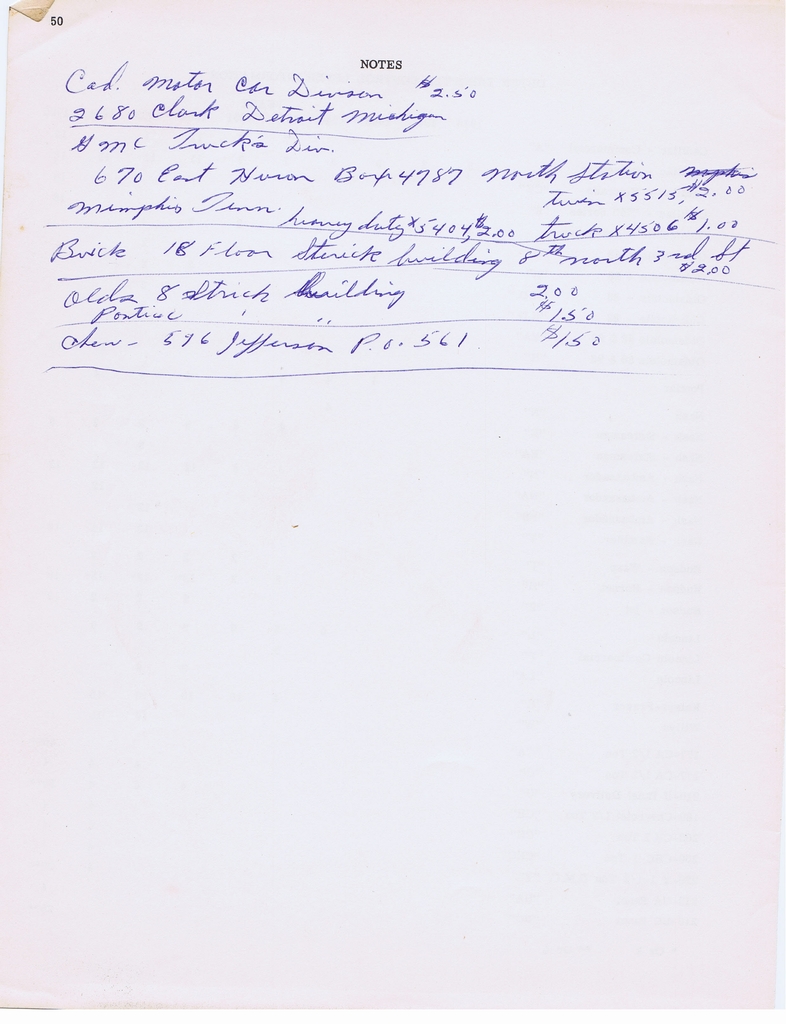 50
NOTES
Cad. Motor Car Divison $2.50
2680 Clark Detroit Michigan
GMC Truck's Div.
670 East Huron Box 4787 North Station
twin X5515, $2.00
Mimphis Tenn. heavy duty X5404, $2.00 truck X4506 $1.00
Buick 18 Floor Sterick building 8th North 3rd St
$2.00
Olds 8 Strick Building 2.00
Pontiac " " $1.50
Chev - 596 Jefferson P.O. 561 $1.50